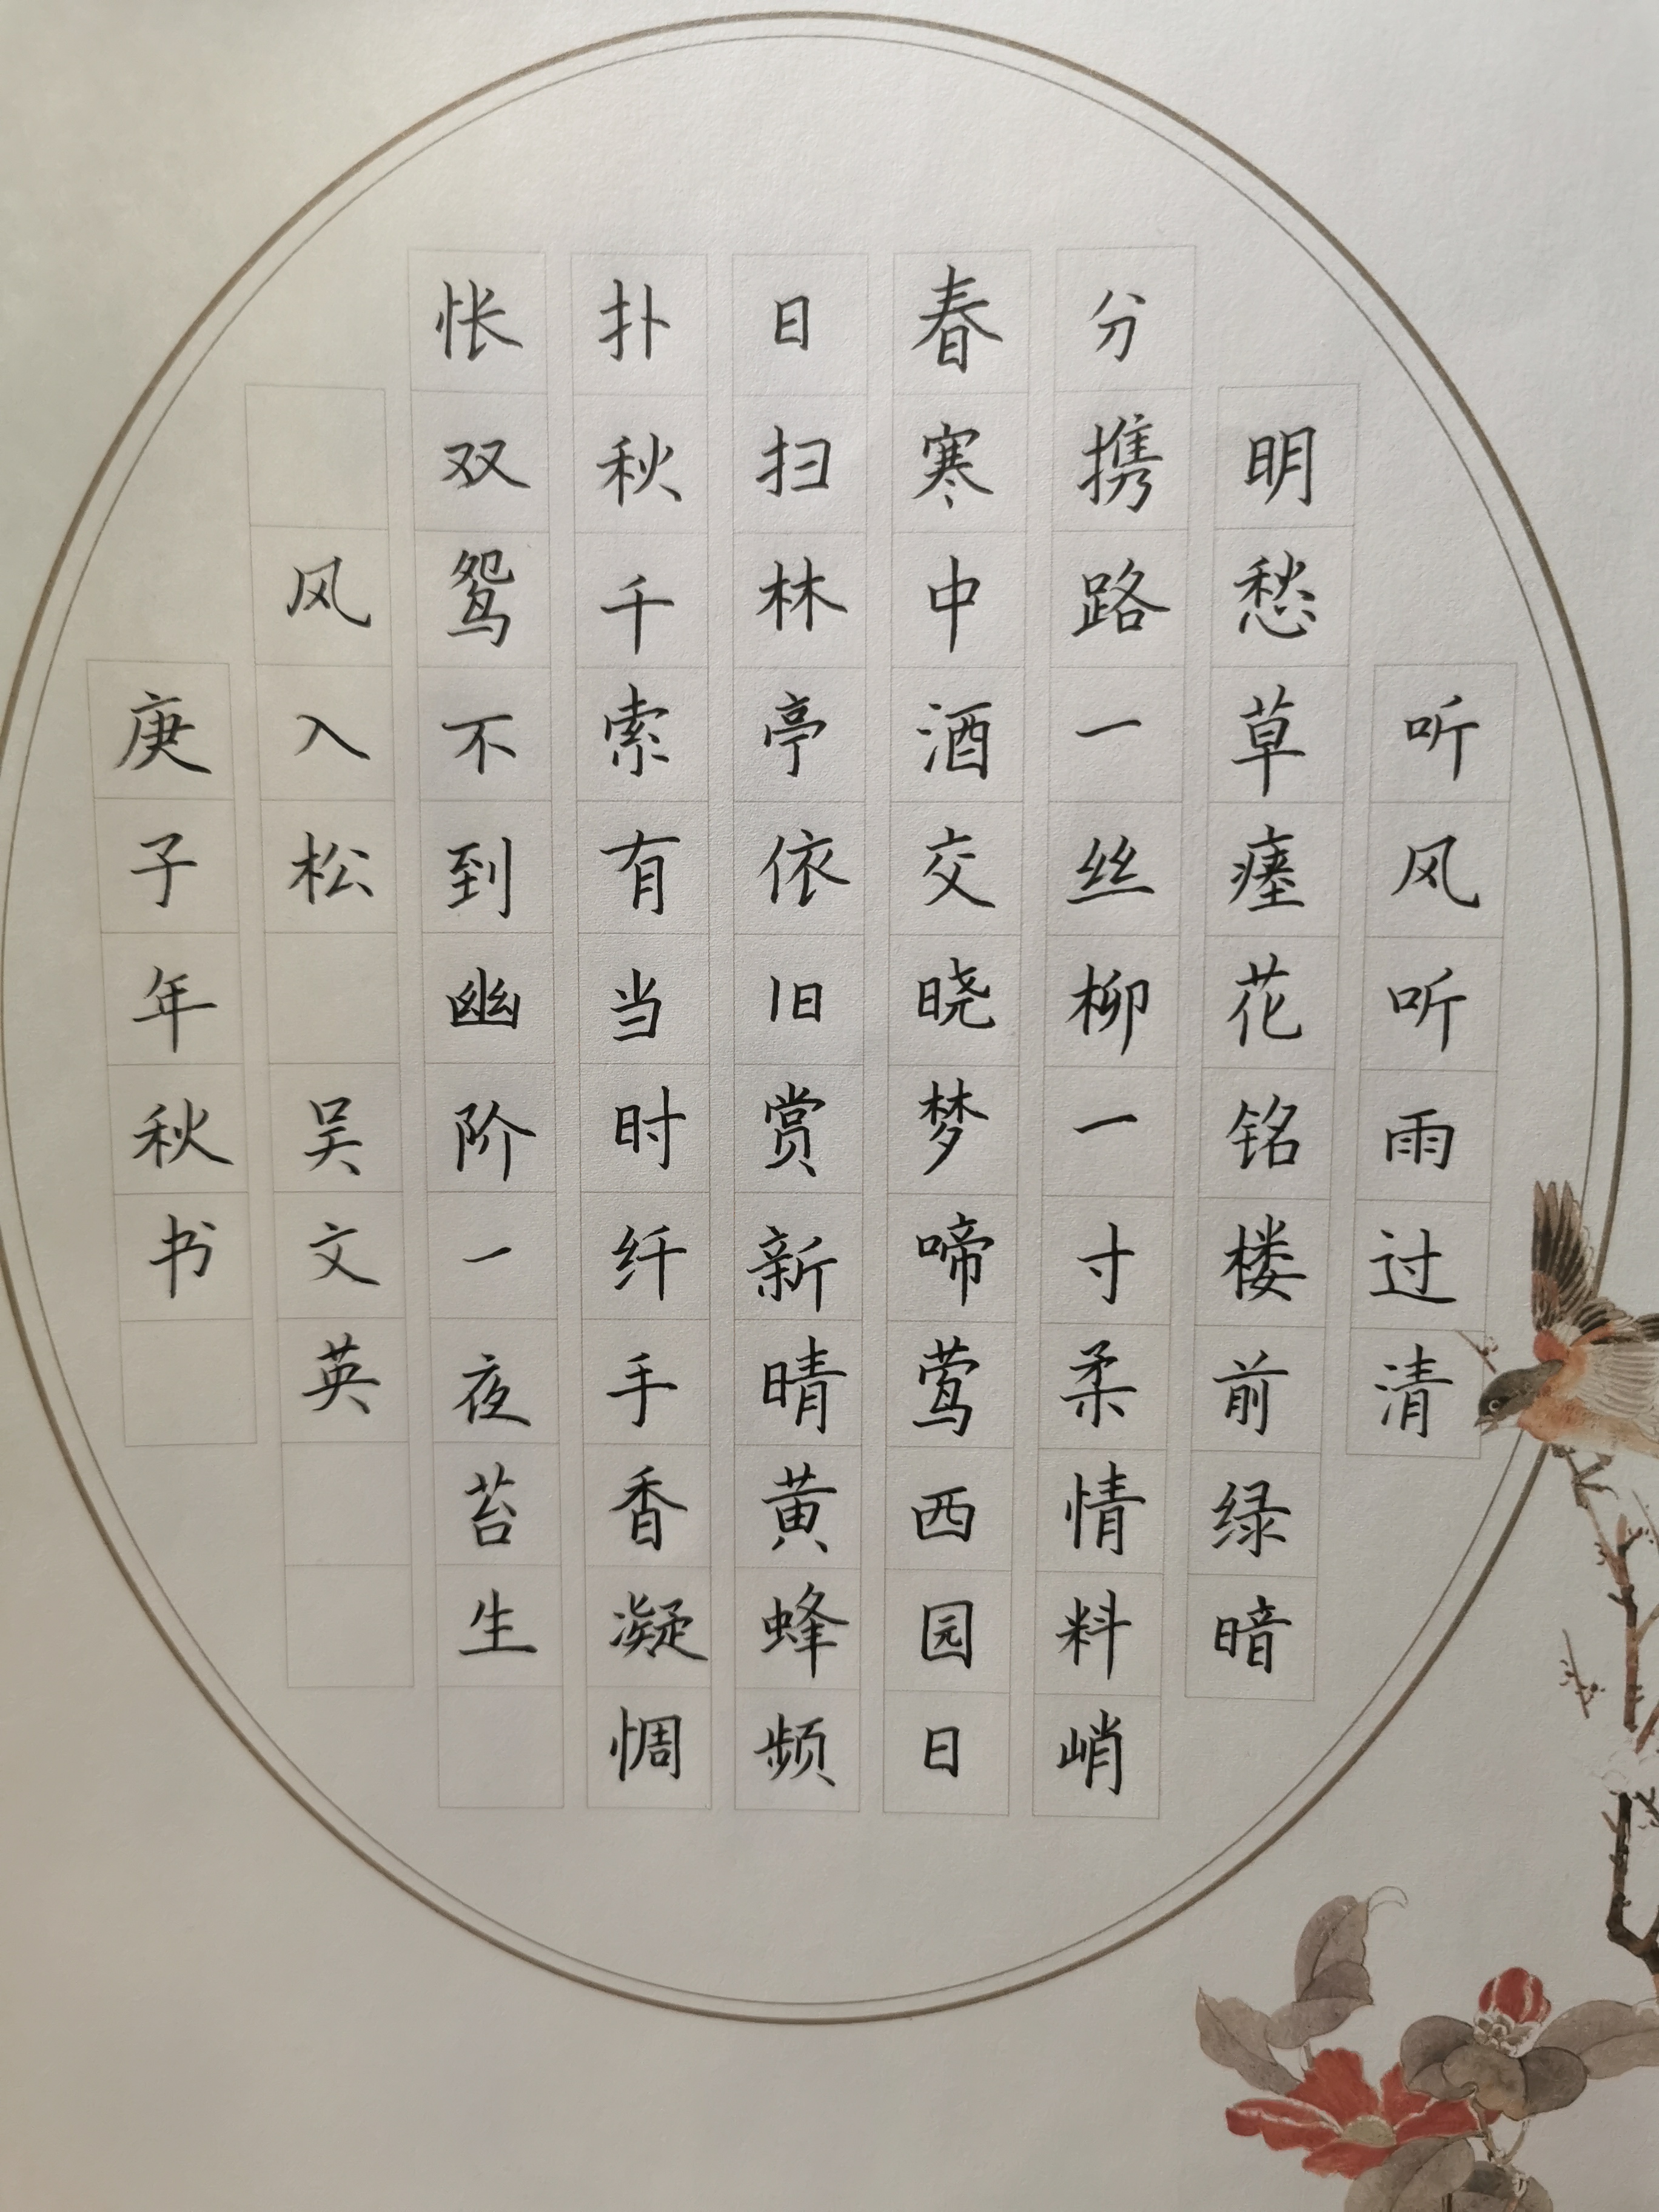 听风听雨过清
明愁草瘗花铭楼前绿暗
分携路一丝柳一寸柔情料峭
春寒中酒交晓梦啼莺西园日
日扫林亭依旧赏新晴黄蜂频
扑秋千索有当时纤手香凝惆
怅双鸳不到幽阶一夜苔生
风入松 吴文英
庚子年秋书